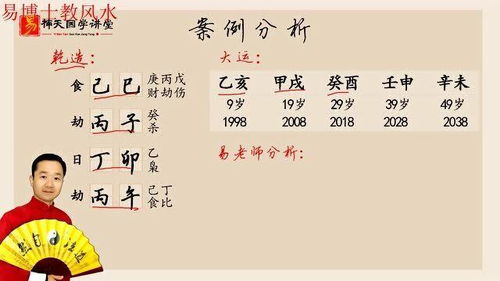 易博士教风水
易 择天国学讲堂
案例分析
乾造：
食 己 巳 庚丙戊
财劫伤
劫 丙 子 癸
杀
日 丁 卯 乙
枭
劫 丙 午 己丁
食比
大运：
乙亥 甲戌 癸酉 壬申 辛未
9岁 19岁 29岁 39岁 49岁
1998 2008 2018 2028 2038
易老师分析：